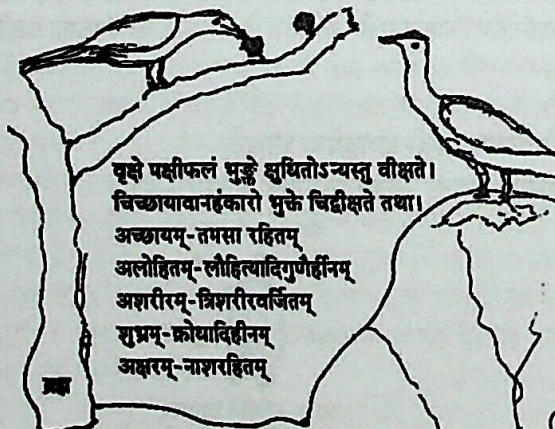 वृक्षे पक्षीफलं भुङ्क्ते क्षुधितोऽन्यस्तु वीक्षते।
चिच्छायावानहंकारो भुक्ते चिद्वीक्षते तथा।
अच्छायम्-तमसा रहितम्
अलोहितम्-लौहित्यादिगुणैर्हीनम्
अशरीरम्-त्रिशरीरवर्जितम्
शुभ्रम्-क्रोधादिहीनम्
अक्षरम्-नाशरहितम्